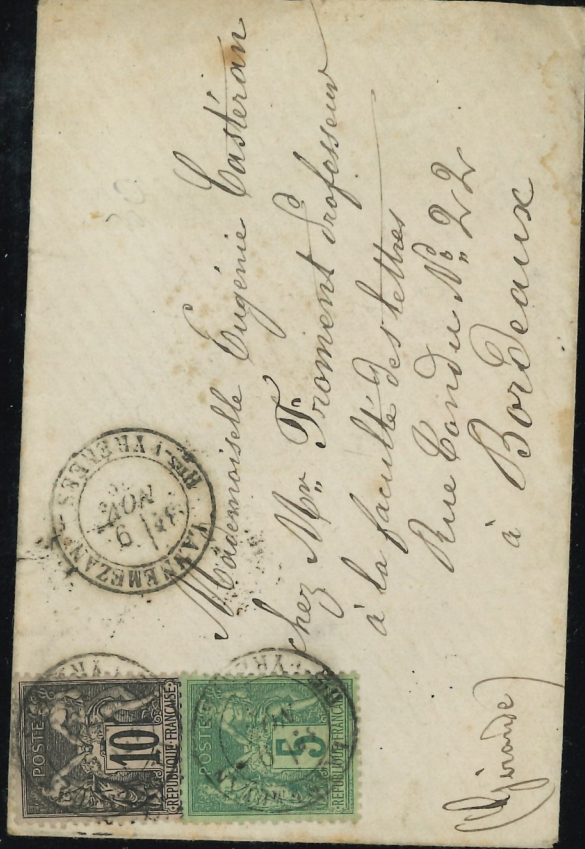 Mademoiselle Eugénie Castéran
chez Mr. Froment Professeur
à la faculté des lettres
Rue Condu No. 22
à Bordeaux
(Gironde)
LANNEMEZAN
Htes-PYRÉNÉES
9
NOV
POSTE
10
REPUBLIQUE FRANCAISE
POSTE
5
REPUBLIQUE FRANCAISE